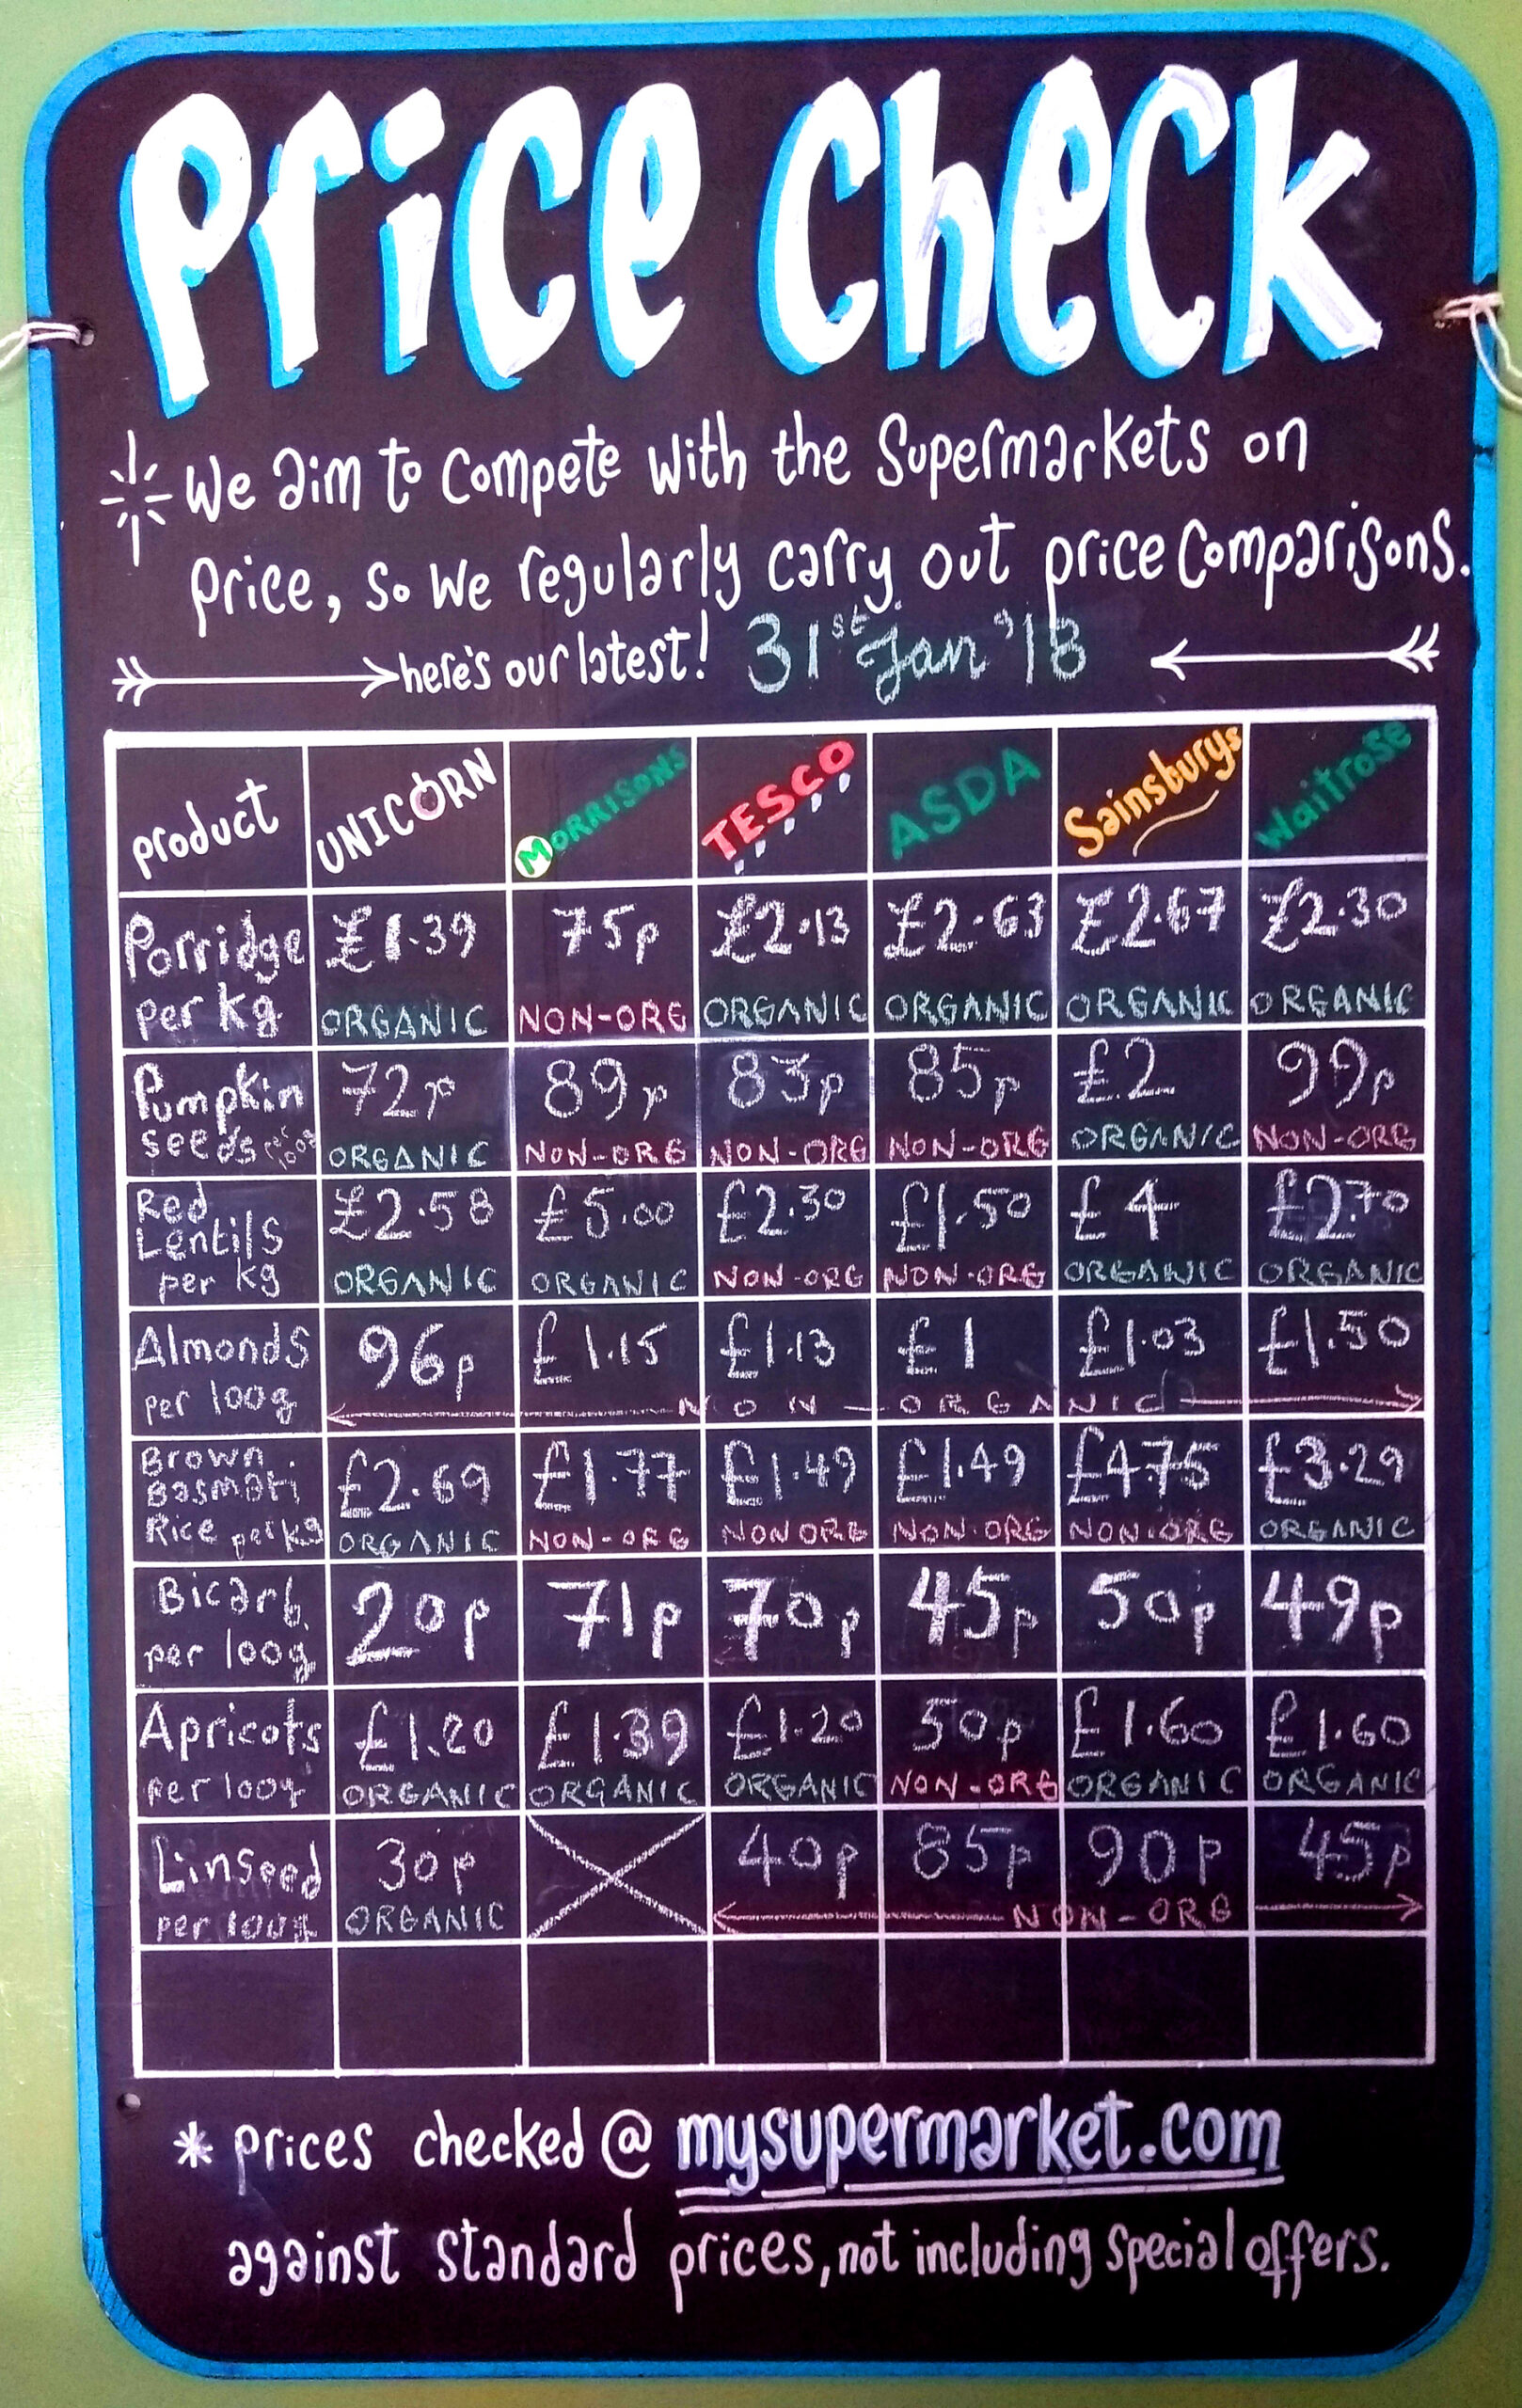 Price Check
We aim to compete with the Supermarkets on
price, so we regularly carry out price comparisons.
here's our latest! 31st Jan '18
product UNICORN MORRISONS TESCO ASDA Sainsburys Waitrose
Porridge £1.39 75p £2.13 £2.63 £2.67 £2.30
per kg ORGANIC NON-ORG ORGANIC ORGANIC ORGANIC ORGANIC
Pumpkin 72p 89p 83p 85p £2 99p
seeds per 100g ORGANIC NON-ORG NON-ORG NON-ORG ORGANIC NON-ORG
Red
Lentils £2.58 £5.00 £2.30 £1.50 £4 £2.70
per kg ORGANIC ORGANIC NON-ORG NON-ORG ORGANIC ORGANIC
Almonds 96p £1.15 £1.13 £1 £1.03 £1.50
per 100g NON-ORGANIC
Brown
Basmati £2.69 £1.77 £1.49 £1.49 £4.75 £3.29
Rice per kg ORGANIC NON-ORG NON ORG NON-ORG NON-ORG ORGANIC
Bicarb. 20p 71p 70p 45p 50p 49p
per 100g
Apricots £1.20 £1.39 £1.20 50p £1.60 £1.60
per 100g ORGANIC ORGANIC ORGANIC NON-ORG ORGANIC ORGANIC
Linseed 30p 40p 85p 90p 45p
per 100g ORGANIC NON-ORG
* prices checked @ mysupermarket.com
against standard prices, not including special offers.